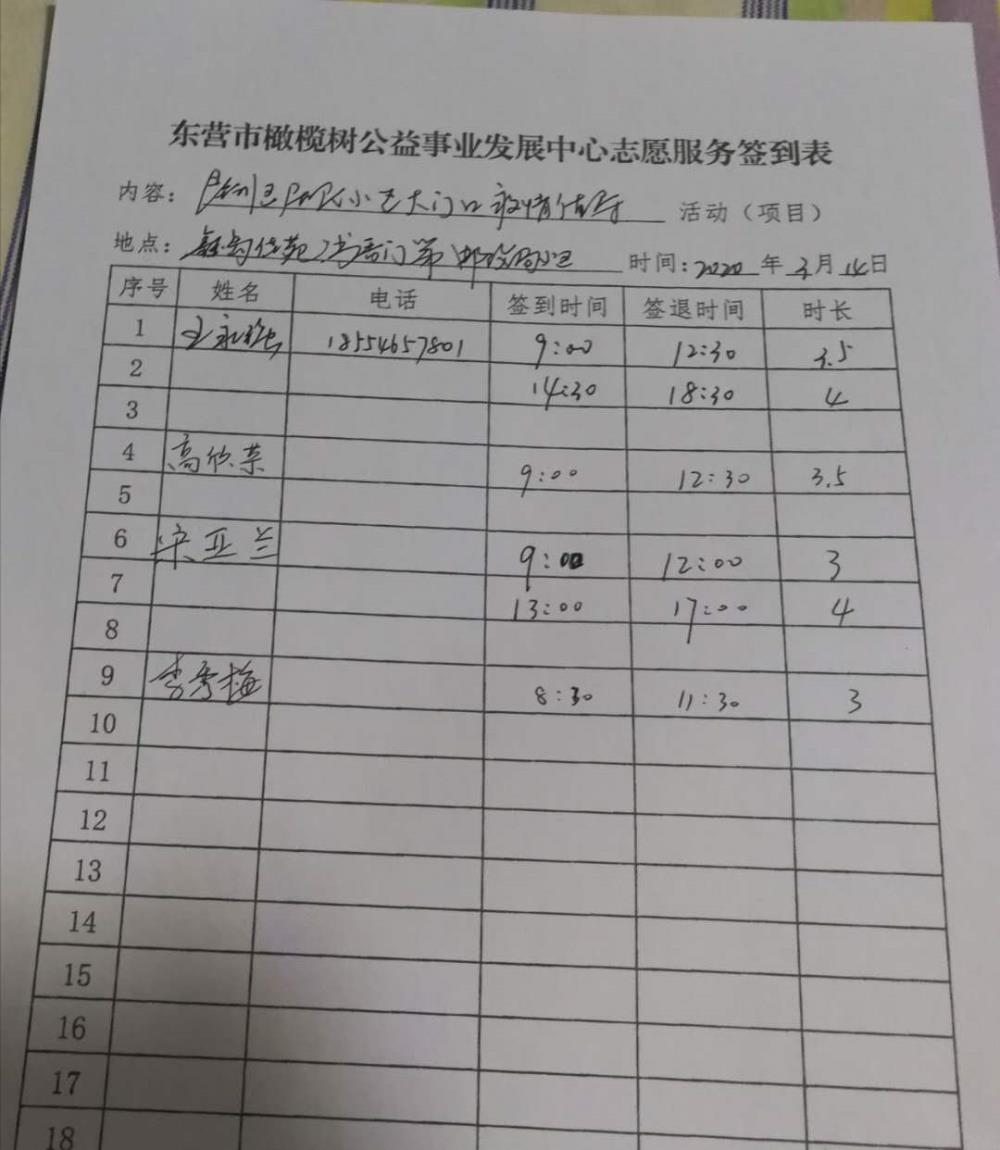 东营市橄榄树公益事业发展中心志愿服务签到表
内容: 小区大门口疫情值守 活动（项目）
地点: 书香门第 邮政局小区 时间: 2020 年 3 月 14 日
序号 姓名 电话 签到时间 签退时间 时长
1 王 18554657801 9:00 12:30 3.5
2 14:30 18:30 4
3
4 高欣荣 9:00 12:30 3.5
5
6 宋亚兰 9:00 12:00 3
7 13:00 17:00 4
8
9 李秀梅 8:30 11:30 3
10
11
12
13
14
15
16
17
18